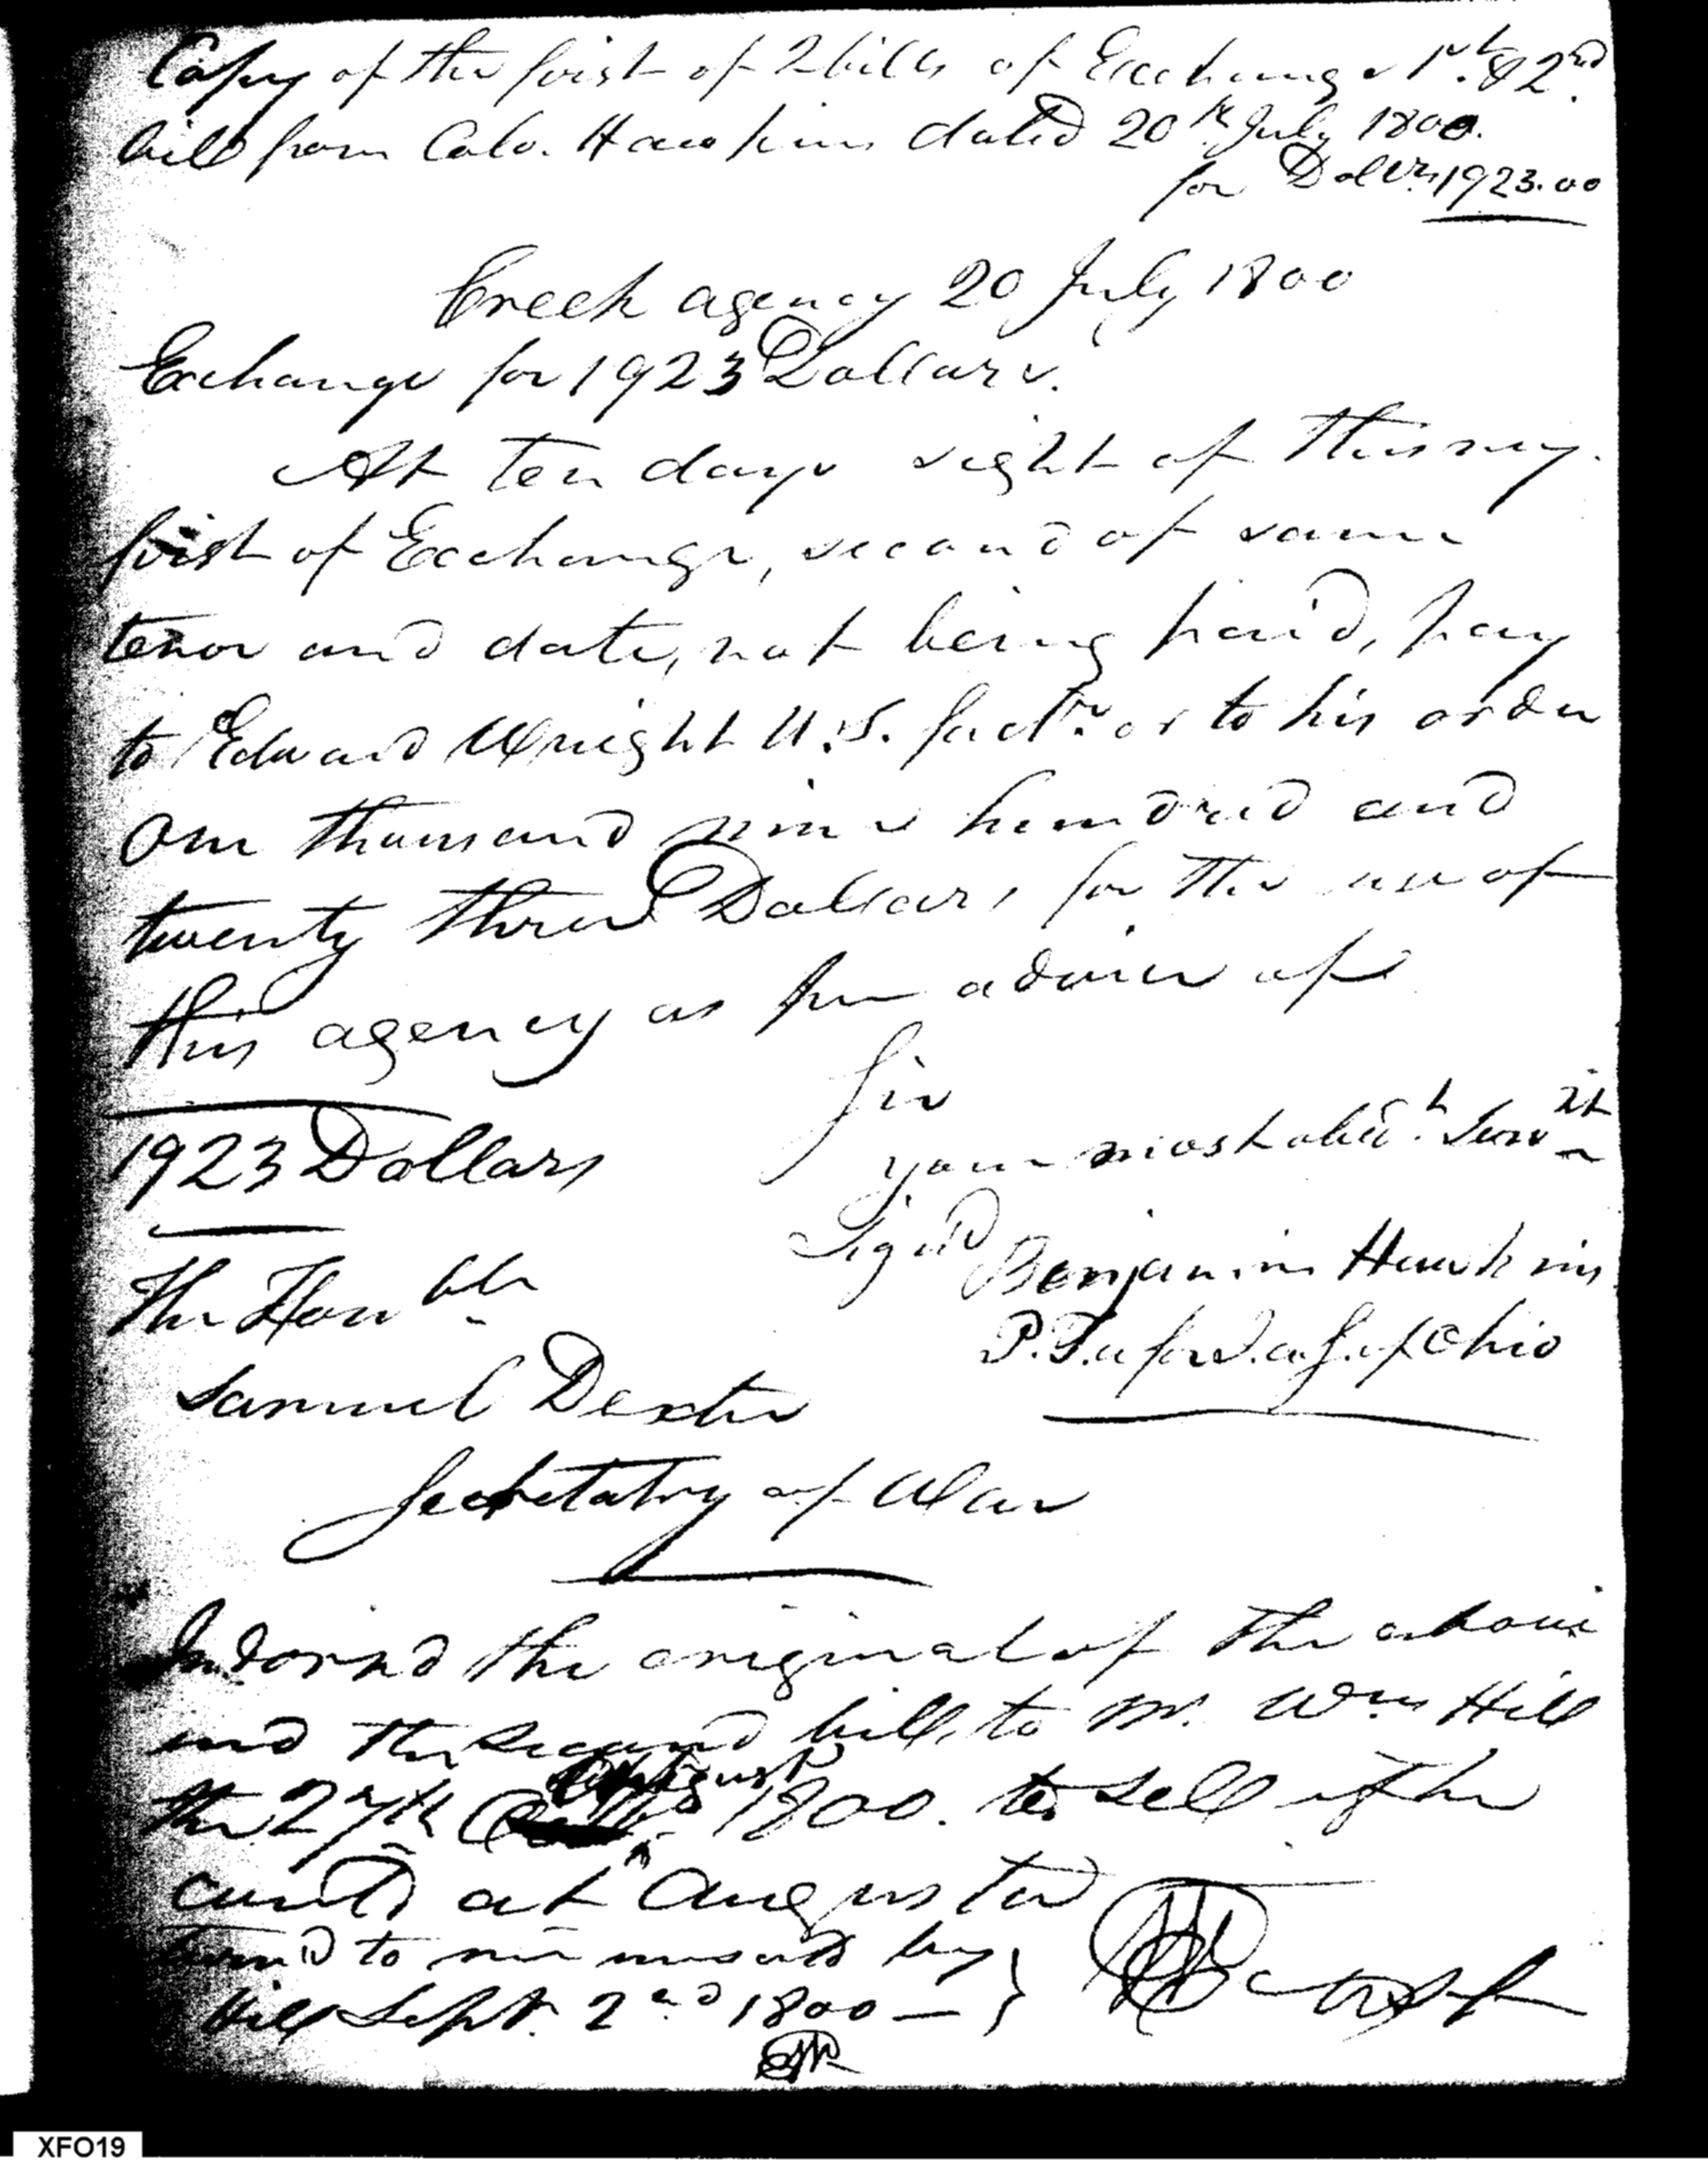 Copy of the first of 2 bills of Exchange 1st. & 2nd.
bill from Colo. Hawkins dated 20th July 1800.
for Dollrs. 1923.00
Creek agency 20 July 1800
Exchange for 1923 Dollars.
At ten days sight of this my
first of Exchange, second of same
tenor and date, not being paid, pay
to Edward Wright U.S. factr. or to his order
One thousand nine hundred and
twenty three Dollars, for the use of
this agency as per advice of
Sir
your most obedt. Servt
1923 Dollars
Signd Benjamin Hawkins
P.T.a for I.a.S. of Ohio
The Honble
Samuel Dexter
Secretatry of War
Indorsd the original of the above
and the second bill, to Mr. Wm Hill
the 27th August 1800. to sell if he
could at Augusta
turnd to me unsold by
Hill Sept. 2nd 1800 —
XFO19